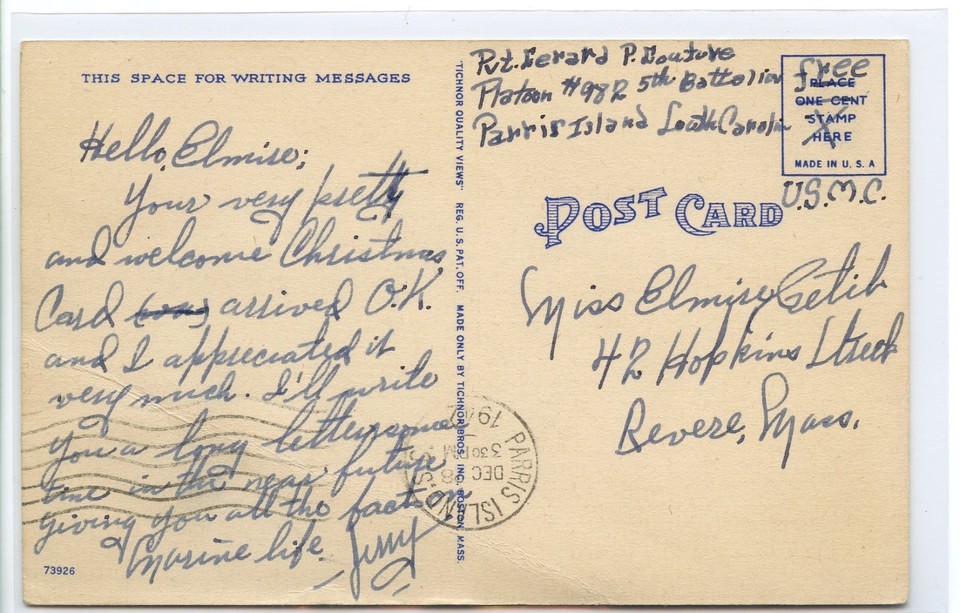 THIS SPACE FOR WRITING MESSAGES
Hello, Elmire;
Your very pretty
and welcome Christmas
Card (was) arrived O.K.
and I appreciated it
very much. I'll write
you a long letter some
time in the near future
giving you all the facts on
Marine life.
Jerry
73926
"TICHNOR QUALITY VIEWS" REG. U.S. PAT. OFF. MADE ONLY BY TICHNOR BROS. INC. BOSTON, MASS.
Pvt. Gerard P.
Platoon #982 5th Battalion
Parris Island South Carolin
free
PLACE
ONE CENT
STAMP
HERE
MADE IN U. S. A
U.S.M.C.
POST CARD
Miss Elmire
42 Hopkins Street
Revere, Mass.
PARRIS ISLAND
DEC
330 PM